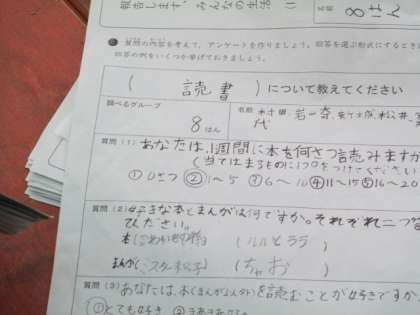 報告します。みんなの生活
名前
8はん
質問の内容を考えて、アンケートを作りましょう。回答を選ぶ形式にするときに
回答の例をいくつか挙げておきましょう。
( 読書 )について教えてください
調べるグループ
8はん
名前
質問(1) あなたは、1週間に本を何さつ読みますか
(当てはまるものに1つ○をつけてください
①0さつ ②1〜5 ③6〜10 ④11〜15 ⑤16〜20
質問(2) 好きな本とまんがは何ですか。それぞれ二つ
ください。
本( ) (ルルとララ)
まんが( ) (ちゃお)
質問(3) あなたは、本(まんが以外)を読むことが好きですか。
①とても好き ②まあまあ